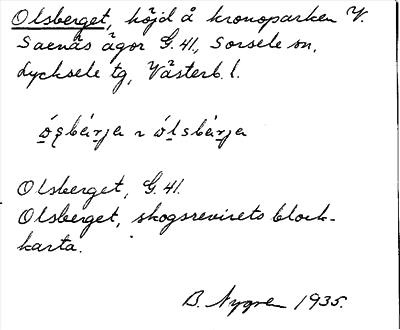 Olsberget, höjd å kronoparken V.
Saenäs ägor G. 41, Sorsele sn,
Lycksele tg, Västerb. l.
ó̱s̨báṟja ~ ó̱lsbáṟja
Olsberget, G. 41.
Olsberget, skogsrevirets block-
karta.
B. Nygren 1935.